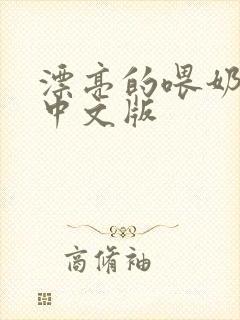 漂亮的喂奶
中文版
商脩袖